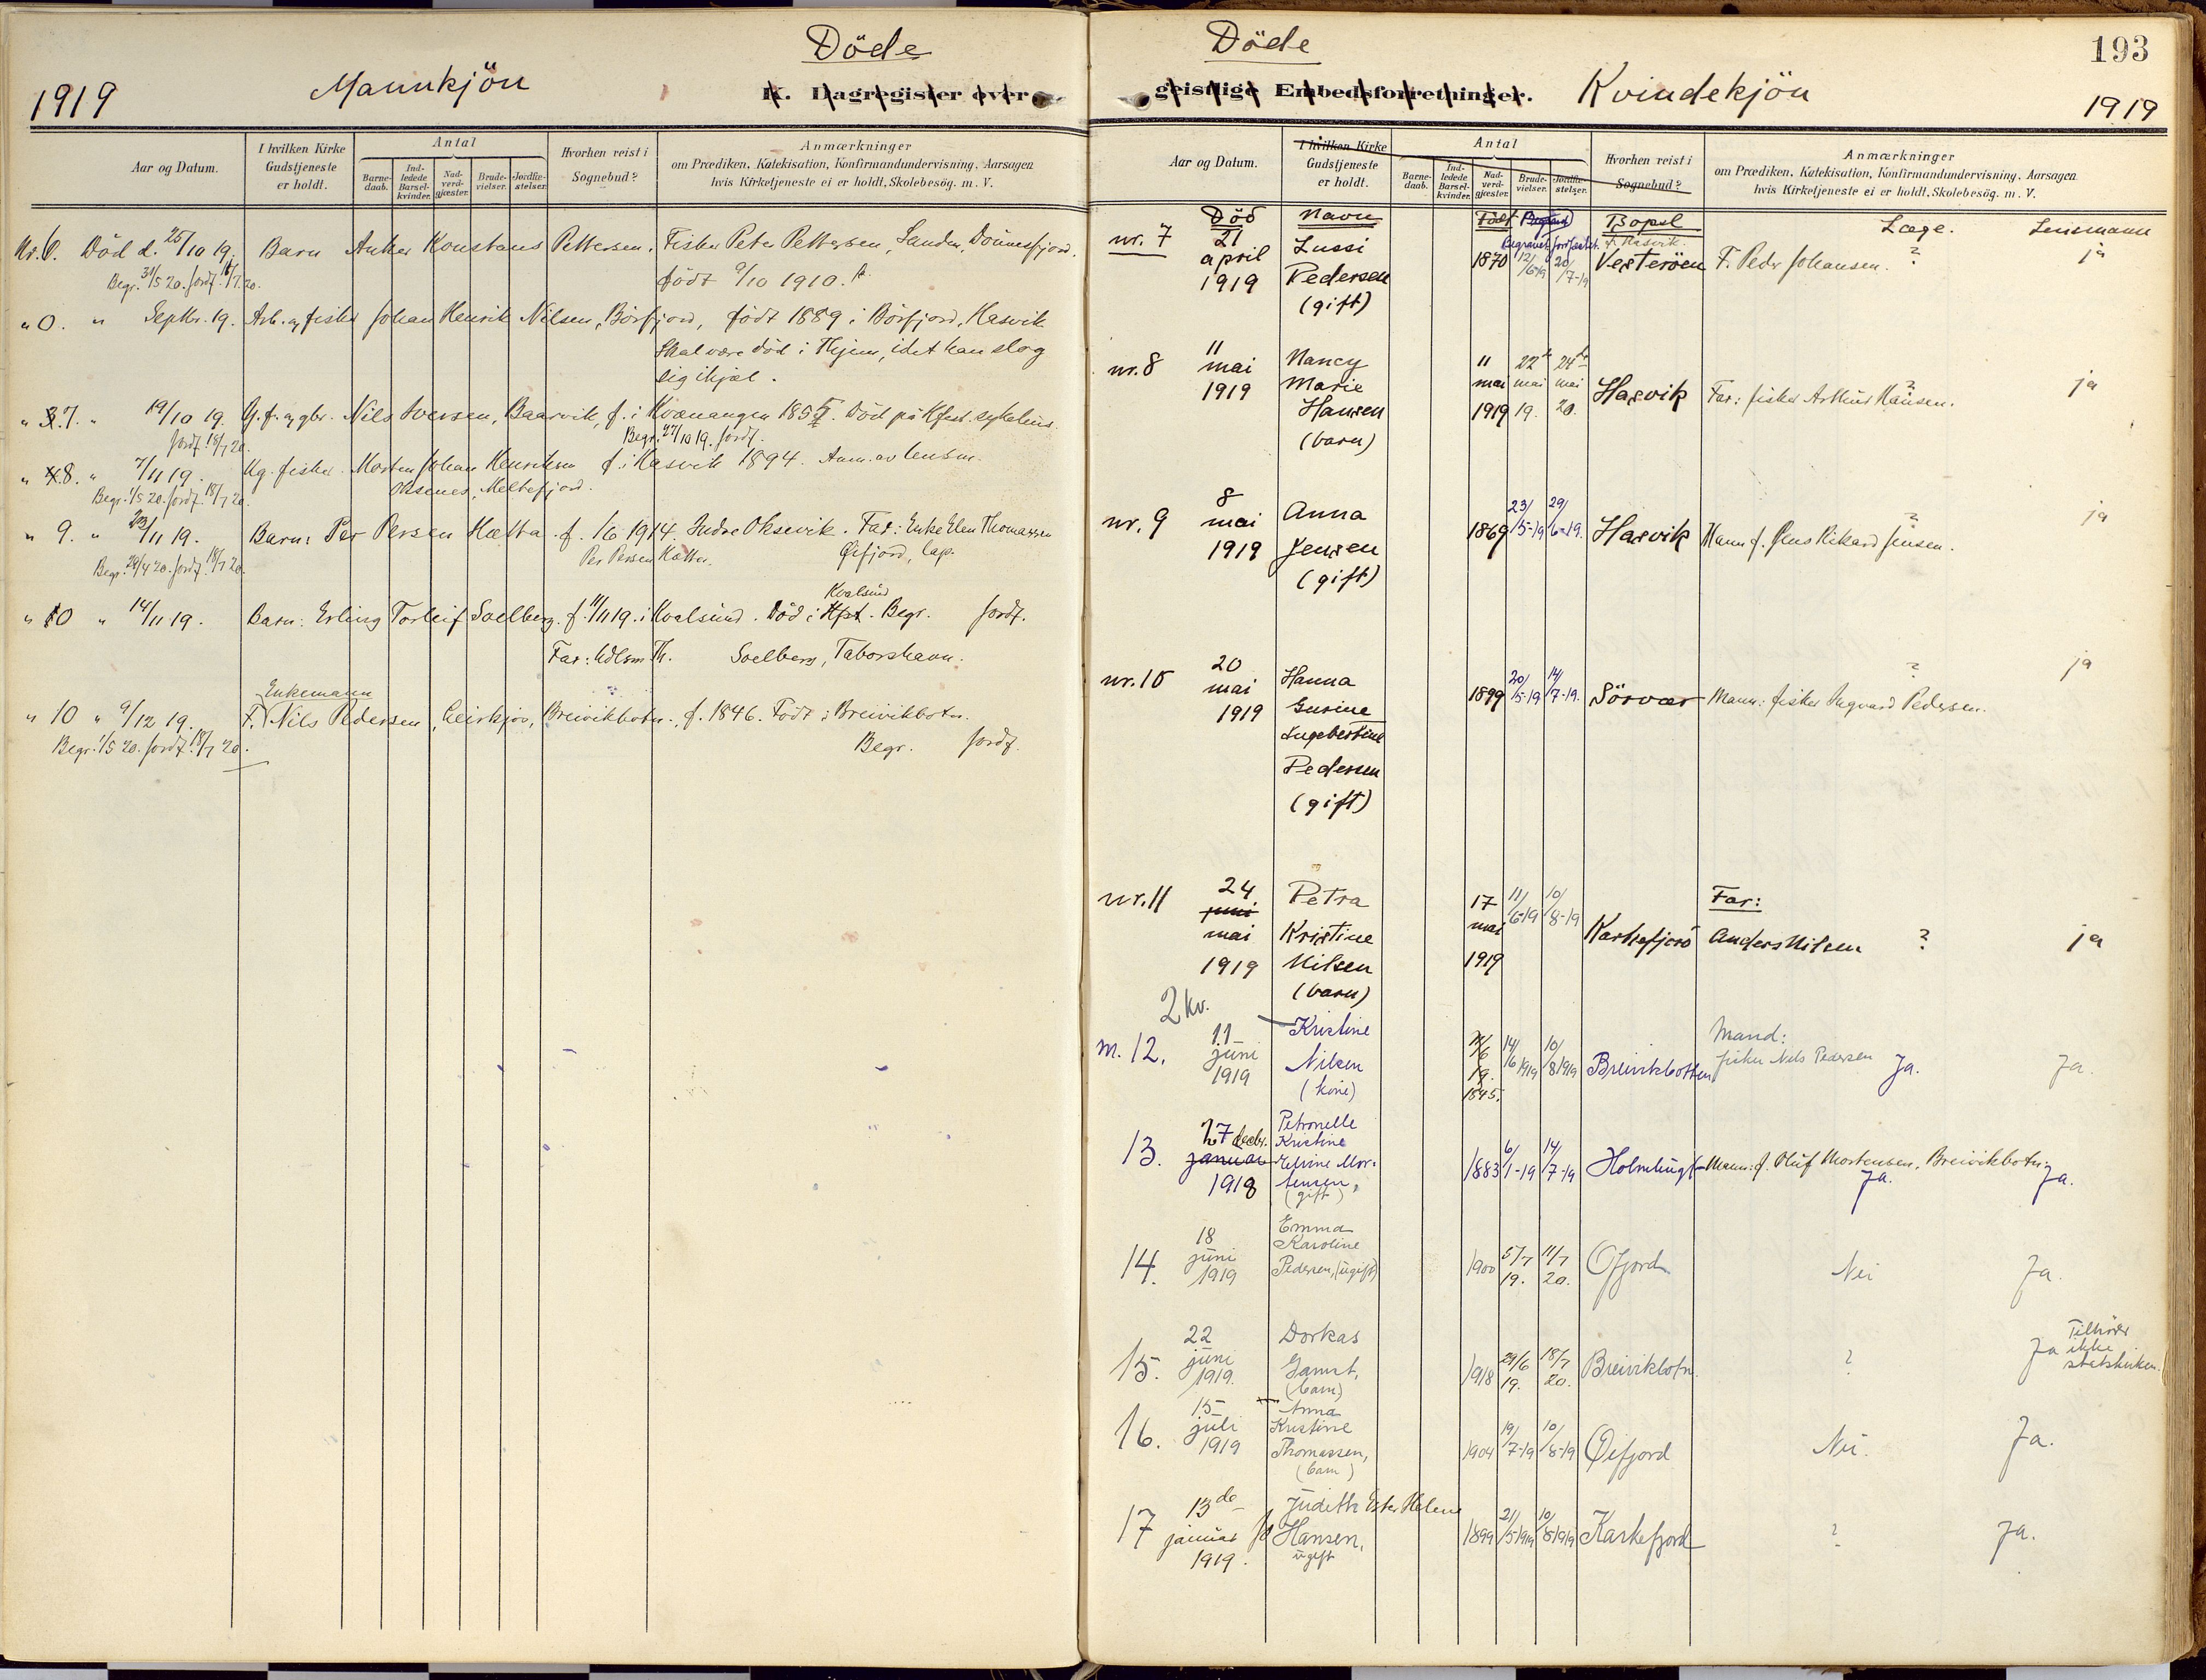 Döde
Mannkjön
1919
K. Dagregister over
Aar og Datum.
I hvilken Kirke Gudstjeneste er holdt.
Antal
Barne-daab.
Ind-ledede Barsel-kvinder.
Nad-verd-gjæster.
Brude-vielser.
Jordfæ-stelser.
Hvorhen reist i Sognebud?
Anmærkninger
om Prædiken, Katekisation, Konfirmandundervisning, Aarsagen
hvis Kirketjeneste ei er holdt, Skolebesög. m. V.
Nr. 6. Död d. 25/10 19. Barn Anker Konstans Pettersen. Fisker Peter Pettersen, Sanden, Dönnesfjord.
Begr. 31/5 20. jordf. 20. födt 9/10 1910.
" 0. " Septbr. 19. Arb. og fisker Johan Henrik Nilsen, Börfjord, födt 1889 i Börfjord, Hasvik
Skal være död i Hjem, idet han slog
sig ihjæl.
" 7. " 19/10 19. G. f. og gbr. Nils Iversen, Baarvik, f. i Kvænangen 185 Död på Hfest. sykehus.
jordf. 18/7 20. Begr. 27/10 19. jordf.
" 8. " 7/11 19. Ug. fisker Morten Johan Henriksen f. i Hasvik 1894. Anm. av lensm.
Begr. 1/5 20. jordf. 18/7 20. Oksenes, Meltefjord.
" 9. " 23/11 19. Barn: Per Persen Hætta. f. 1/6 1914. Indre Oksevik. Far: Enke Elen Thomassen
Begr. 29/4 20. jordf. 18/7 20. Per Persen Hætta. Øifjord, lap.
Kvalsund
" 10 " 14/11 19. Barn: Erling Torleif Soelberg. f. 11/11 19. i Kvalsund. Död i Hfst. Begr. jordf.
Far: Hdlsm. Th. Soelberg, Taborshavn.
Enkemann
" 10 " 9/12 19. F. Nils Pedersen, Breivikbotn. f. 1846. Födt i Breivikbotn.
Begr. 1/5 20. jordf. 18/7 20. Begr. jordf.
Döde
193
geistlige Embedsforretninger.
Kvindekjön
1919
Aar og Datum.
I hvilken Kirke Gudstjeneste er holdt.
Antal
Barne-daab.
Ind-ledede Barsel-kvinder.
Nad-verd-gjæster.
Brude-vielser.
Jordfæ-stelser.
Hvorhen reist i Sognebud?
Anmærkninger
om Prædiken, Katekisation, Konfirmandundervisning, Aarsagen
hvis Kirketjeneste ei er holdt, Skolebesög. m. V.
Död Navn Födt Bopel Læge. Lensmann
Begravet jordfæstet. f. Hasvik.
nr. 7 21 april 1919 Lussi Pedersen (gift) 1870 12/6-19 20/7-19 Vesteröen F. Peder Johansen. ? ja
nr. 8 11 mai 1919 Nancy Marie Hansen (barn) 11 mai 1919 22 mai 19. 24 mai 20. Hasvik Far: fisker Arthur Hansen. ? ja
nr. 9 8 mai 1919 Anna Jensen (gift) 1869 23/5-19 29/6-19. Hasvik Mann f. Jens Rikard Jensen. ? ja
nr. 10 20 mai 1919 Hanna Gurine Ingebertine Pedersen (gift) 1899 20/5-19 14/7-19. Sörvær Mann: fisker Ingvard Pedersen. ? ja
nr. 11 24 juni mai 1919 Petra Kristine Nilsen (barn) 17 mai 1919 11/6-19 10/8-19 Karkefjord Far: Anders Nilsen ? ja
2 kv.
nr. 12. 11 juni 1919 Kristine Nilsen (kone) 19. 1845. 14/6 1919 10/8 1919 Breivikbotten Mand: fisker Nils Pedersen Ja. Ja.
13. 27 decbr. januar 1918 Petronelle Kristine Mortensen, (gift) 1883 6/1-19 14/7-19 Mann: f. Oluf Mortensen, Breivikbotn. Ja. Ja.
14. 18 juni 1919 Emma Karoline Pedersen, (ugift) 1900 5/7 19. 11/7 20. Ofjord Nei Ja.
15. 22 juni 1919. Dorkas Gamst, (barn) 1918 29/6 19. 18/7 20. Breivikbotn. ? Ja Tilhörer ikke statskirken.
16. 15 juli 1919 Anna Kristine Thomassen, (barn) 1904 19/7-19 10/8-19 Øifjord Nei. Ja.
17 13de januar 1919. Judith Ester Helene Hansen, ugift 1899 21/5 1919 10/8 1919 Karkefjord ? Ja.